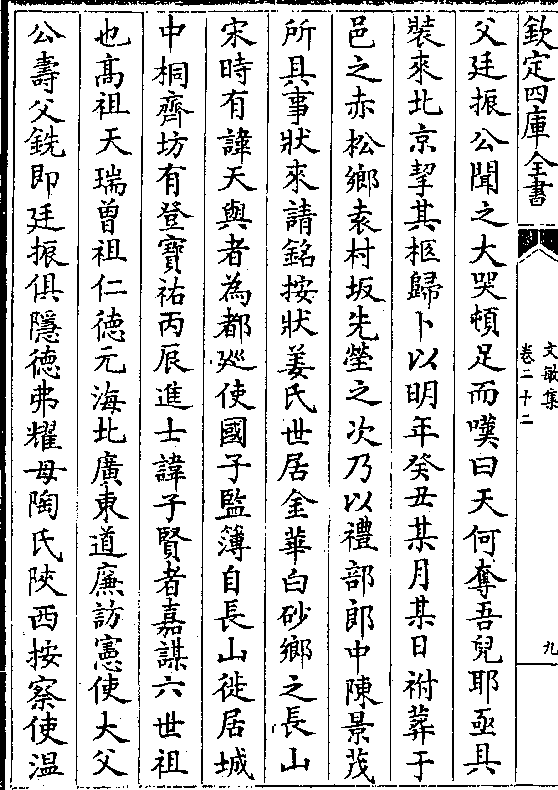 欽定四庫全書
文敏集
卷二十二
九
父廷振公聞之大哭頓足而嘆曰天何奪吾兒耶亟具
裝來北京挈其柩歸卜以明年癸丑某月某日祔葬于
邑之赤松鄉袁村坂先塋之次乃以禮部郎中陳景茂
所具事狀來請銘按狀姜氏世居金華白砂鄉之長山
宋時有諱天與者為都廵使國子監簿自長山徙居城
中桐齊坊有登寶祐丙辰進士諱子賢者嘉謀六世祖
也髙祖天瑞曾祖仁德元海北廣東道廉訪憲使大父
公壽父銑即廷振俱隱德弗耀母陶氏陜西按察使溫